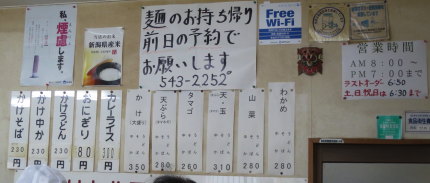 私、
煙慮
します
当店のお米
新潟県産米
麺のお持ち帰り
前日の予約で
お願いします
543-2252
Free
Wi-Fi
営業時間
AM 8:00〜
PM 7:00まで
ラストオーダー 6:50
土、日、祝日は 6:30まで
かけそば 230
かけ中か 230
かけうどん 230
おにぎり 80円
カレーライス 300円
かけ(大盛り) 350
天ぷら 280
タマゴ 260
天・玉 310
山菜 280
わかめ 280